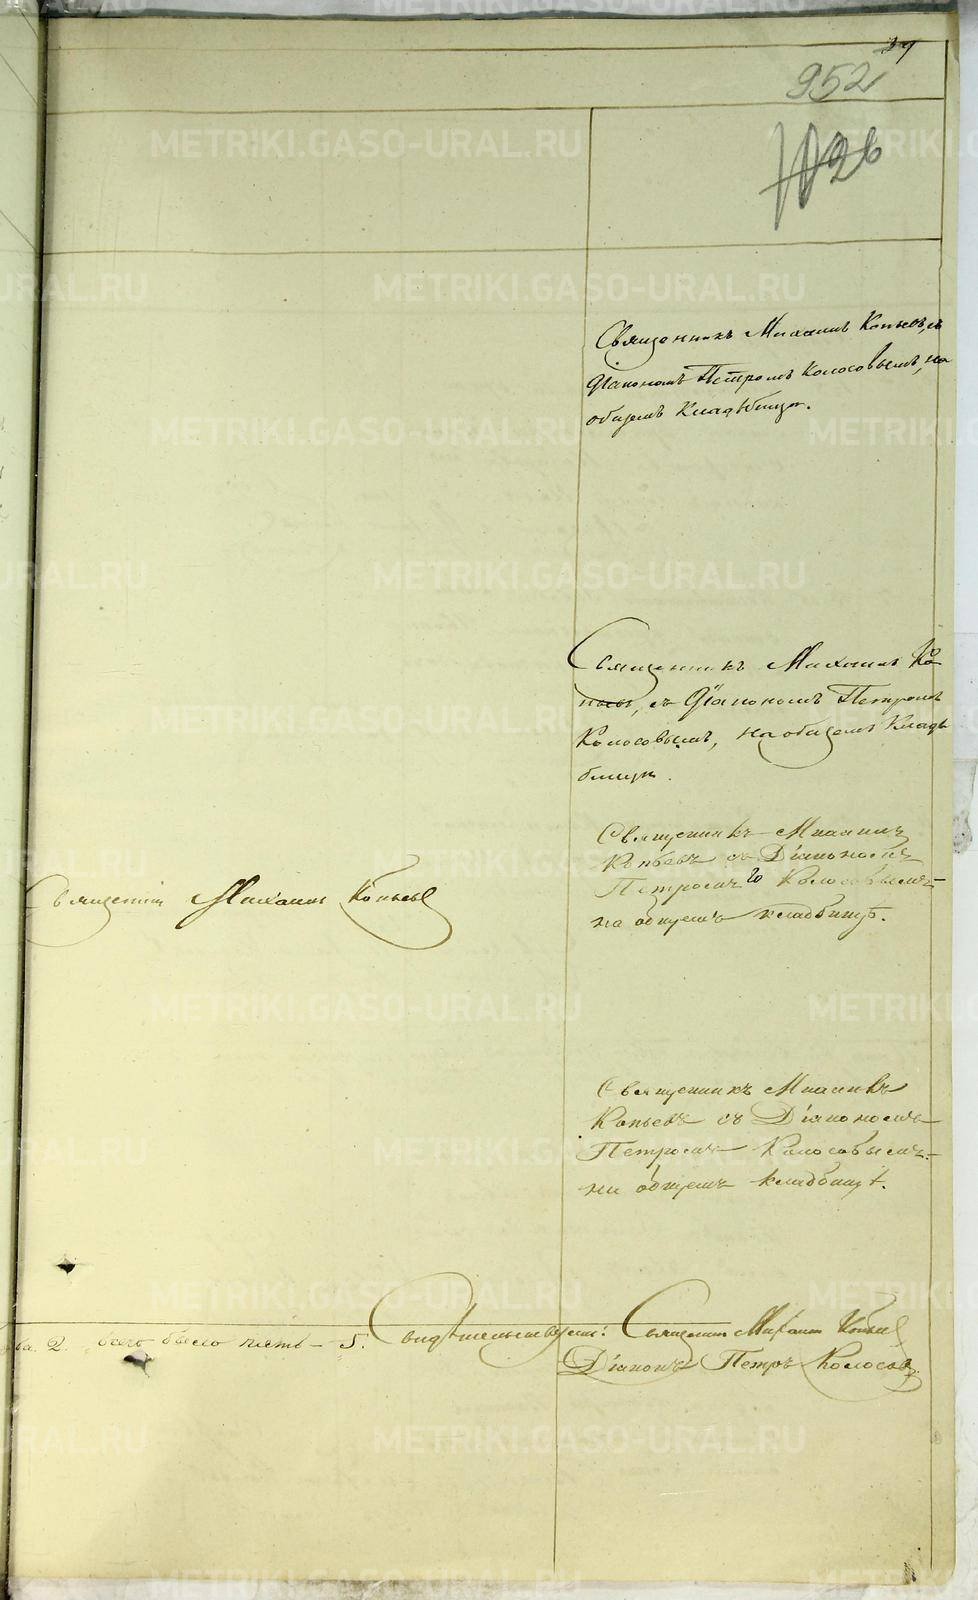 27
952
26
Священникъ Михаилъ Копьевъ, съ
Діакономъ Петромъ Колосовымъ, на
общемъ Кладбищѣ.
Священникъ Михаилъ Ко-
пьевъ, съ Діакономъ Петромъ
Колосовымъ, на общемъ Клад-
бищѣ.
Священникъ Михаилъ
Копьевъ съ Діакономъ
Петромъ Колосовымъ-
на общемъ кладбищѣ.
Священникъ Михаилъ Копьевъ
Священникъ Михаилъ
Копьевъ съ Діакономъ
Петромъ Колосовымъ-
на общемъ кладбищѣ.
2. всего было пять – 5. Свидѣтельствуемъ: Священникъ Михаилъ Копьевъ
Діаконъ Петръ Колосовъ.
METRIKI.GASO-URAL.RU